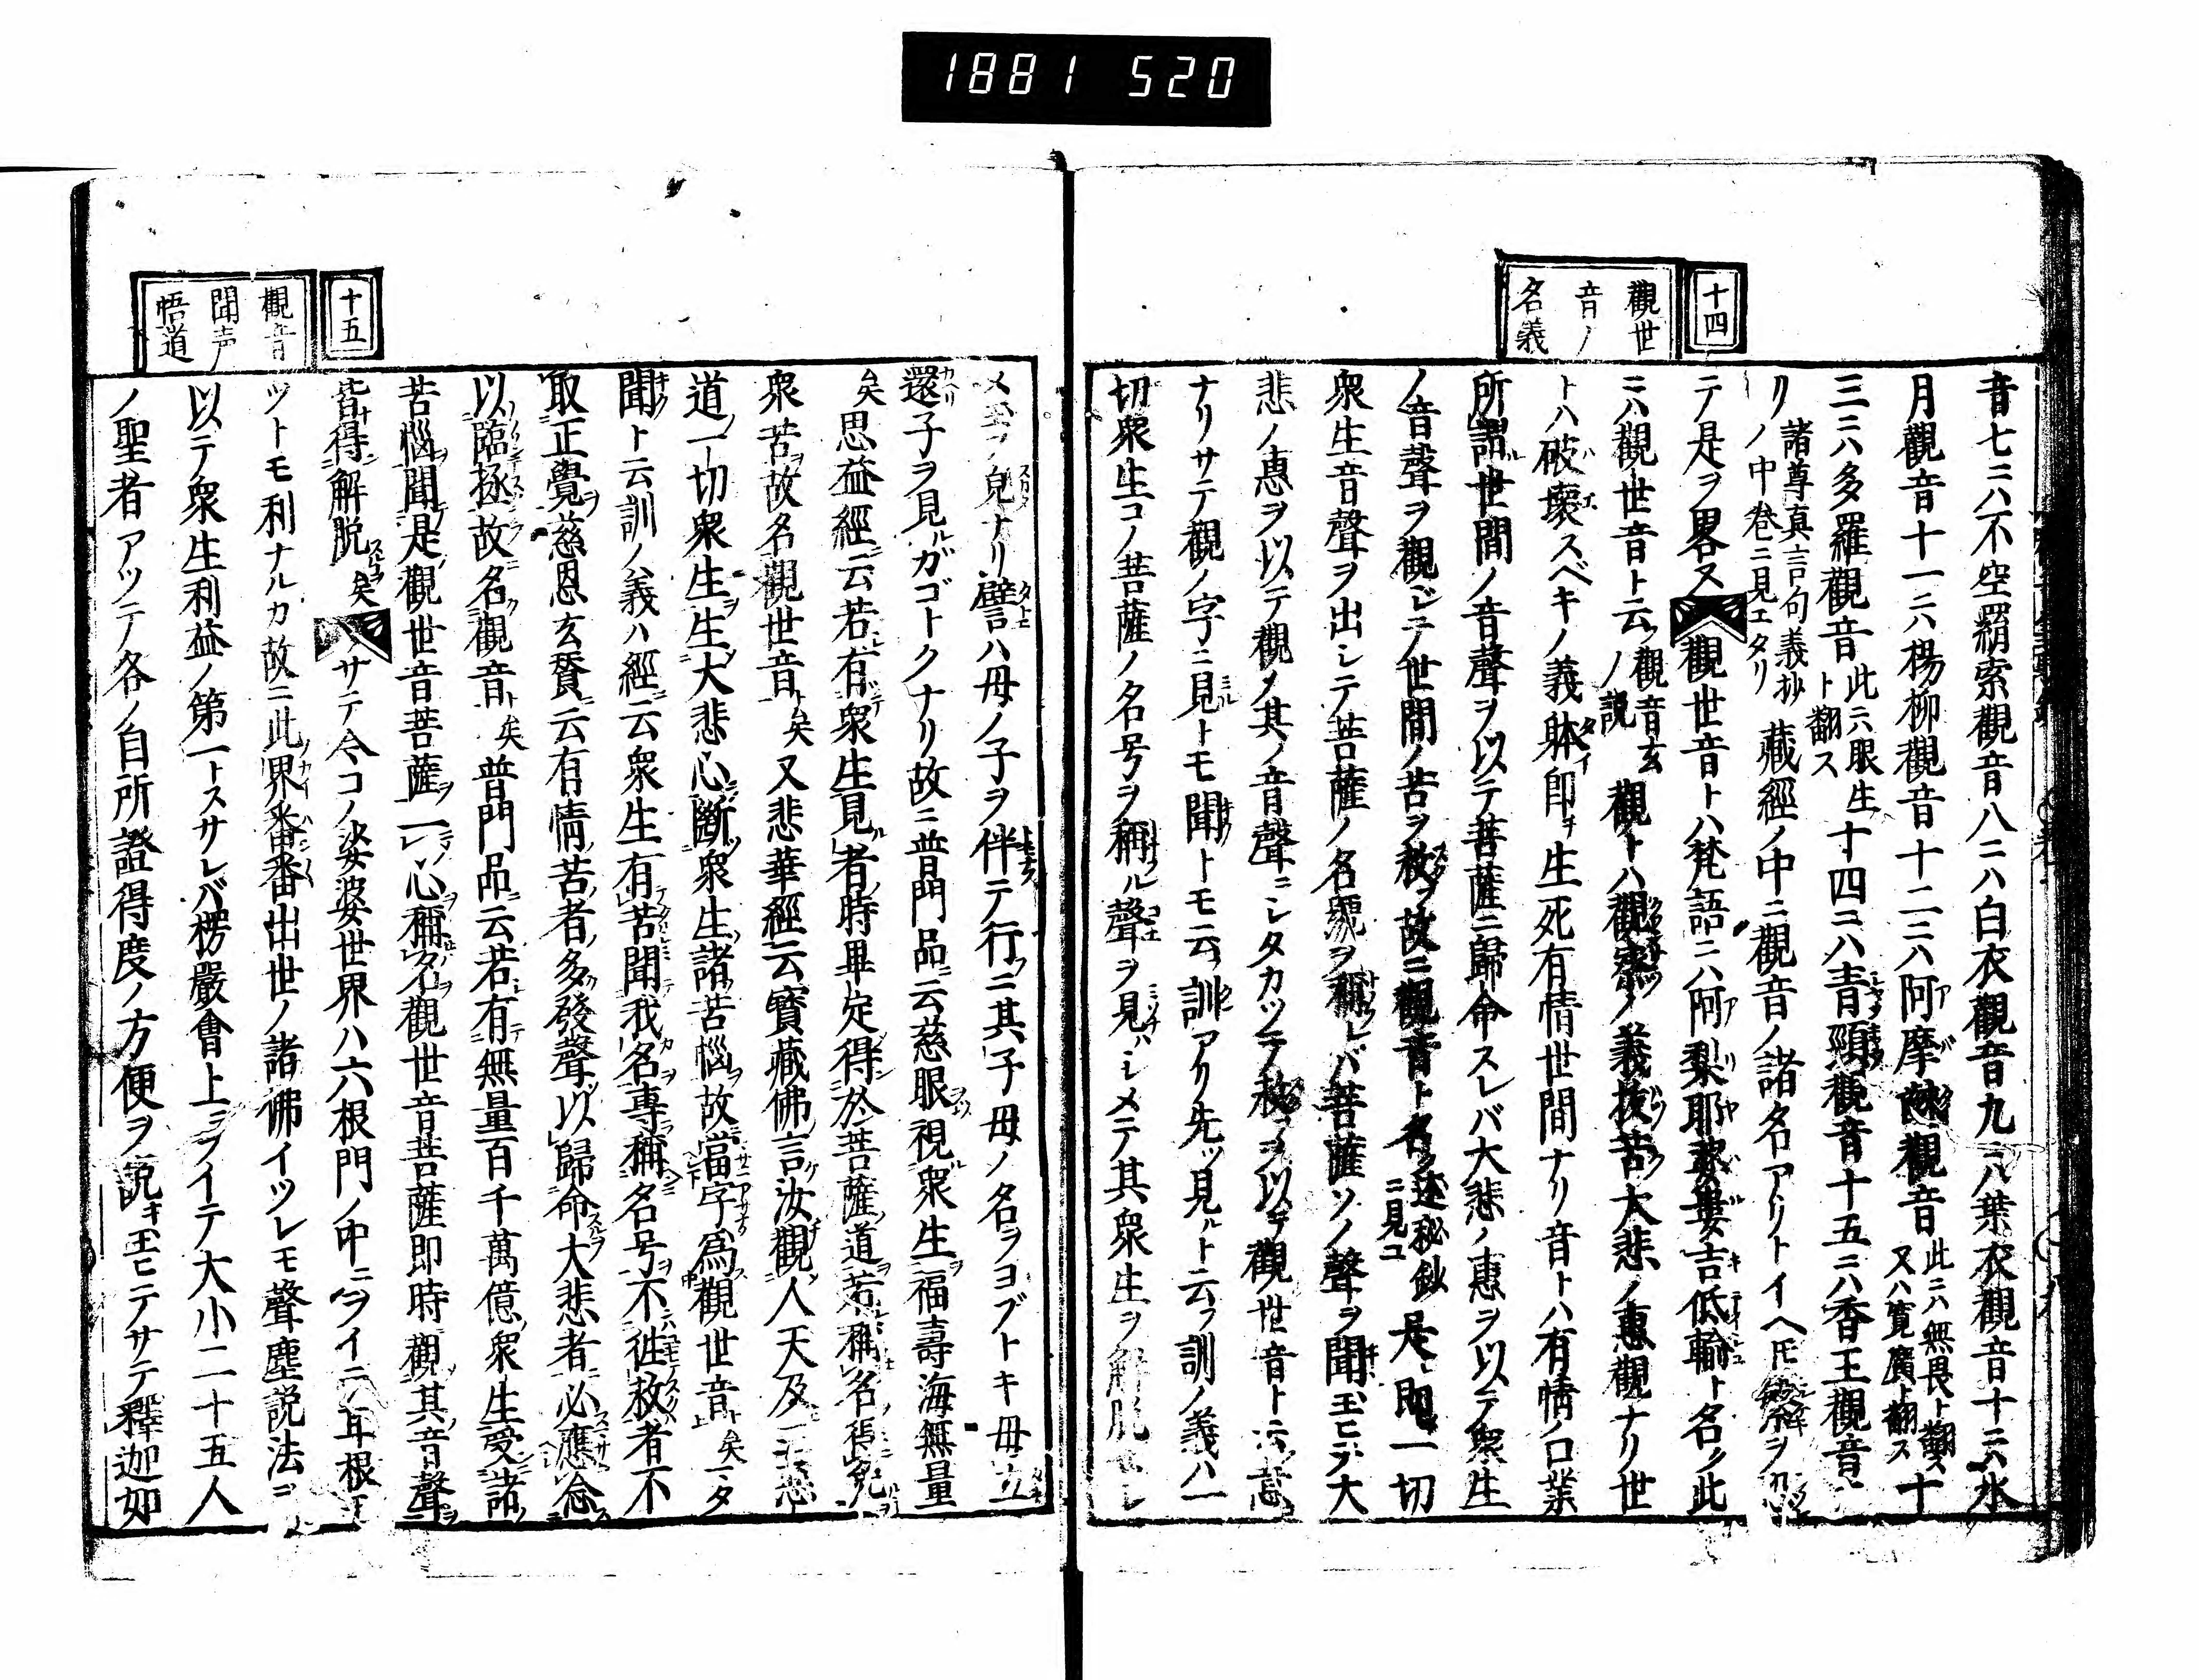 1881 520
十四
觀世
音ノ
名義
音七ニハ不空羂索觀音八ニハ白衣觀音九ニハ葉衣觀音十ニハ水
月觀音十一ニハ楊柳觀音十二ニハ阿摩𪐀觀音此ニハ無畏ト翻ス又ハ寬廣ト翻ス十
三ニハ多羅觀音此ニハ眼生ト翻ス十四ニハ青頸觀音十五ニハ香王觀音ナ
リ諸尊真言句義抄ノ中卷ニ見エタリ藏經ノ中ニ觀音ノ諸名アリトイヘ𪜈
テ是ヲ畧ス觀世音トハ梵語ニハ阿梨耶婆婁吉低輸ト名ク此
ニハ觀世音ト云フ觀音玄ノ說觀トハ觀察ノ義拔苦大悲ノ惠觀ナリ世
トハ破壞スベキノ義躰即チ生死有情世間ナリ音トハ有情ノ口業
所謂世間ノ音聲ヲ以テ菩薩ニ歸命スレバ大悲ノ惠ヲ以テ衆生
ノ音聲ヲ觀ジテ世間ノ苦ヲ救フ故ニ觀音ト名ク述秘鈔ニ見ユ是レ即一切
衆生音聲ヲ出シテ菩薩ノ名號ヲ稱レバ菩薩ソノ聲ヲ聞玉ヒテ大
悲ノ惠ヲ以テ觀メ其ノ音聲ニシタカツテ救ヲ以テ觀世音ト云意
ナリサテ觀ノ字ニ見トモ聞トモ云訓アリ先ツ見ルト云フ訓ノ義ハ一
切衆生コノ菩薩ノ名号ヲ稱ル聲ヲ見ハシメテ其衆生ヲ解脱セシ
メ玉フノ皃ナリ譬ハ母ノ子ヲ伴テ行ニ其子母ノ名ヲヨブトキ母立
還子ヲ見ルガゴトクナリ故ニ普門品ニ云慈眼視衆生福壽海無量
矣思益經云若有衆生見者時畢定得於菩薩道若稱名得免
衆苦故名觀世音矣又悲華經云寳藏佛言汝觀人天及三惡
道一切衆生生大悲心斷衆生諸苦惱故當字爲觀世音矣ニタ
聞ト云訓ノ義ハ經云衆生有苦聞我名專稱名号不徃救者不
取正覺慈恩玄賛云有情苦者多發聲以歸命大悲者必應念
以臨拯故名觀音矣普門品云若有無量百千萬億衆生受諸
苦惱聞是觀世音菩薩一心稱名觀世音菩薩即時觀其音聲
皆得解脱矣サテ今コノ娑婆世界ハ六根門ノ中ニヲイテ耳根
ツトモ利ナルカ故ニ此界番番出世ノ諸佛イツレモ聲塵説法ニ
以テ衆生利益ノ第一トスサレバ楞嚴會上ニヲイテ大小二十五人
ノ聖者アツテ各ノ自所證得度ノ方便ヲ説キ玉ヒテサテ釋迦如
十五
觀音
聞声
悟道